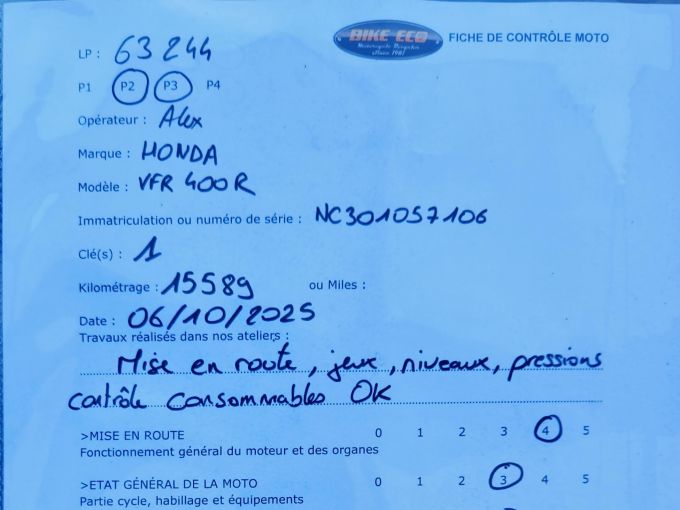 LP : 63244
BIKE ECO
Motorcycle Recyclers
Since 1987
FICHE DE CONTRÔLE MOTO
P1 P2 P3 P4
Opérateur : Alex
Marque : HONDA
Modèle : VFR 400R
Immatriculation ou numéro de série : NC301057106
Clé(s) : 1
Kilométrage : 15589 ou Miles :
Date : 06/10/2025
Travaux réalisés dans nos ateliers :
Mise en route, jeux, niveaux, pressions
contrôle consommables OK
>MISE EN ROUTE 0 1 2 3 4 5
Fonctionnement général du moteur et des organes
>ETAT GÉNÉRAL DE LA MOTO 0 1 2 3 4 5
Partie cycle, habillage et équipements